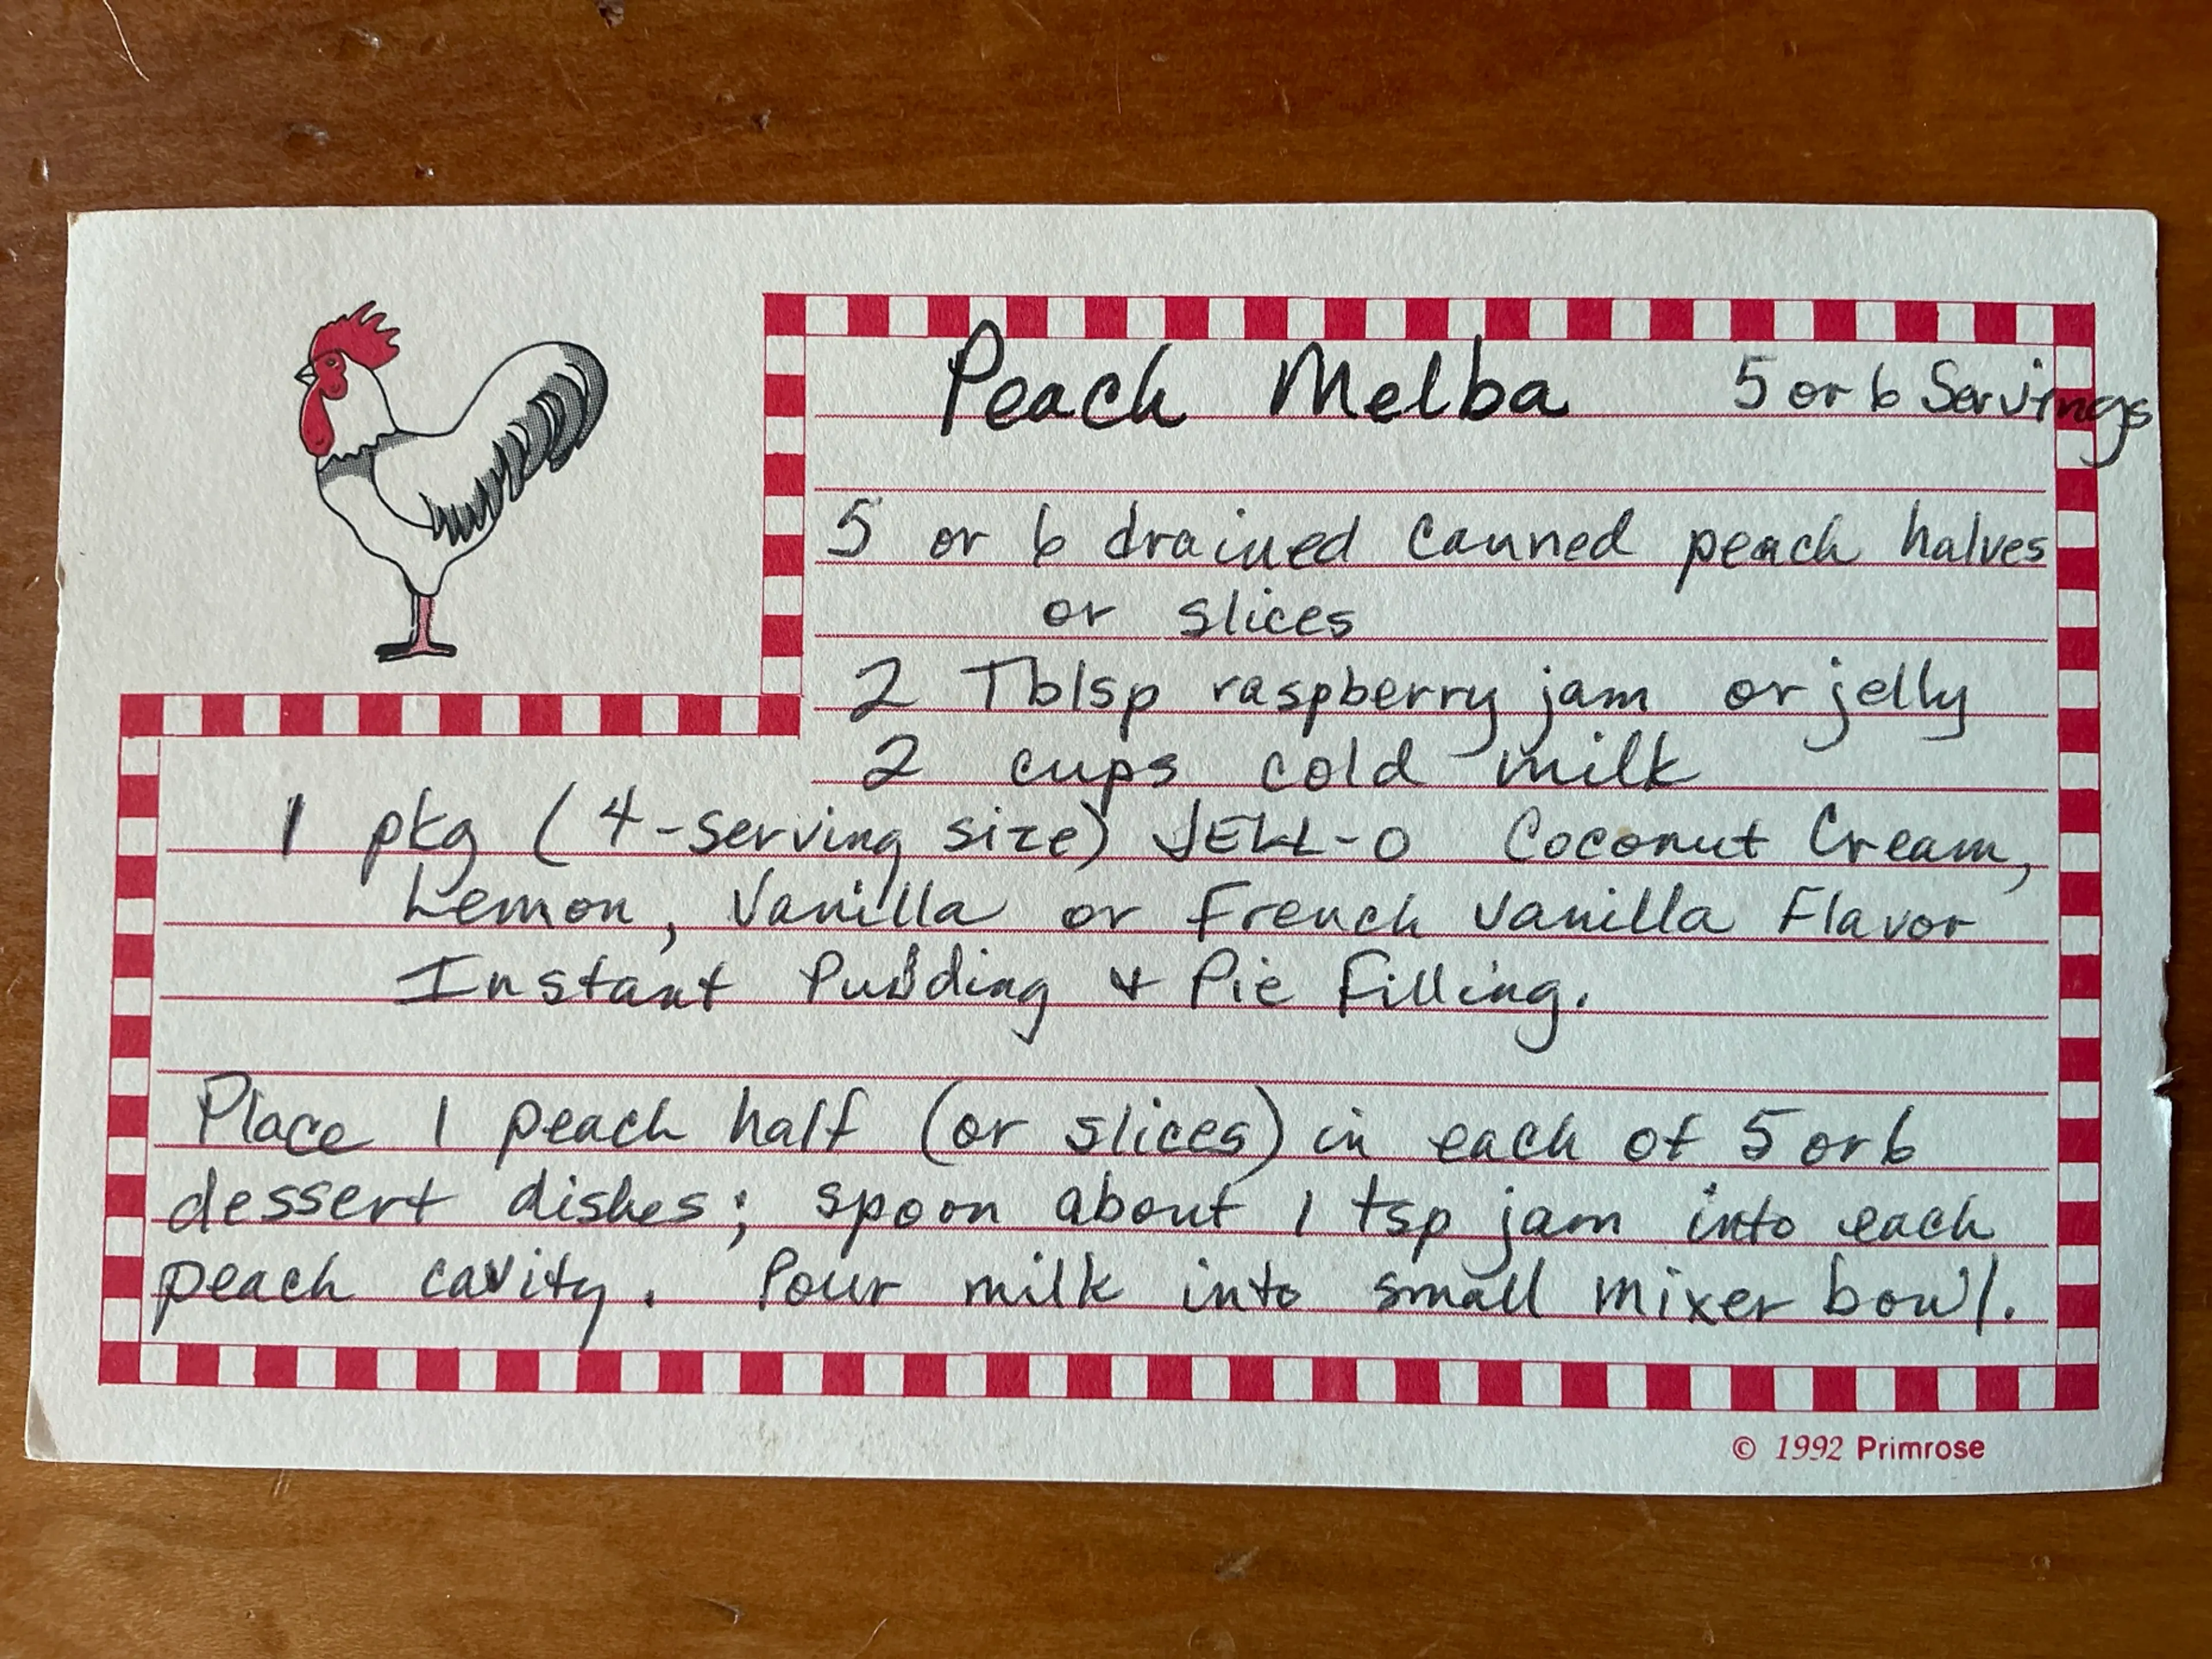 Peach Melba 5 or 6 Servings
5 or 6 drained canned peach halves
or slices
2 Tblsp raspberry jam or jelly
2 cups cold milk
1 pkg (4-serving size) JELL-O Coconut Cream,
Lemon, Vanilla or French Vanilla Flavor
Instant Pudding & Pie Filling.
Place 1 peach half (or slices) in each of 5 or 6
dessert dishes; spoon about 1 tsp jam into each
peach cavity. Pour milk into small mixer bowl.
© 1992 Primrose